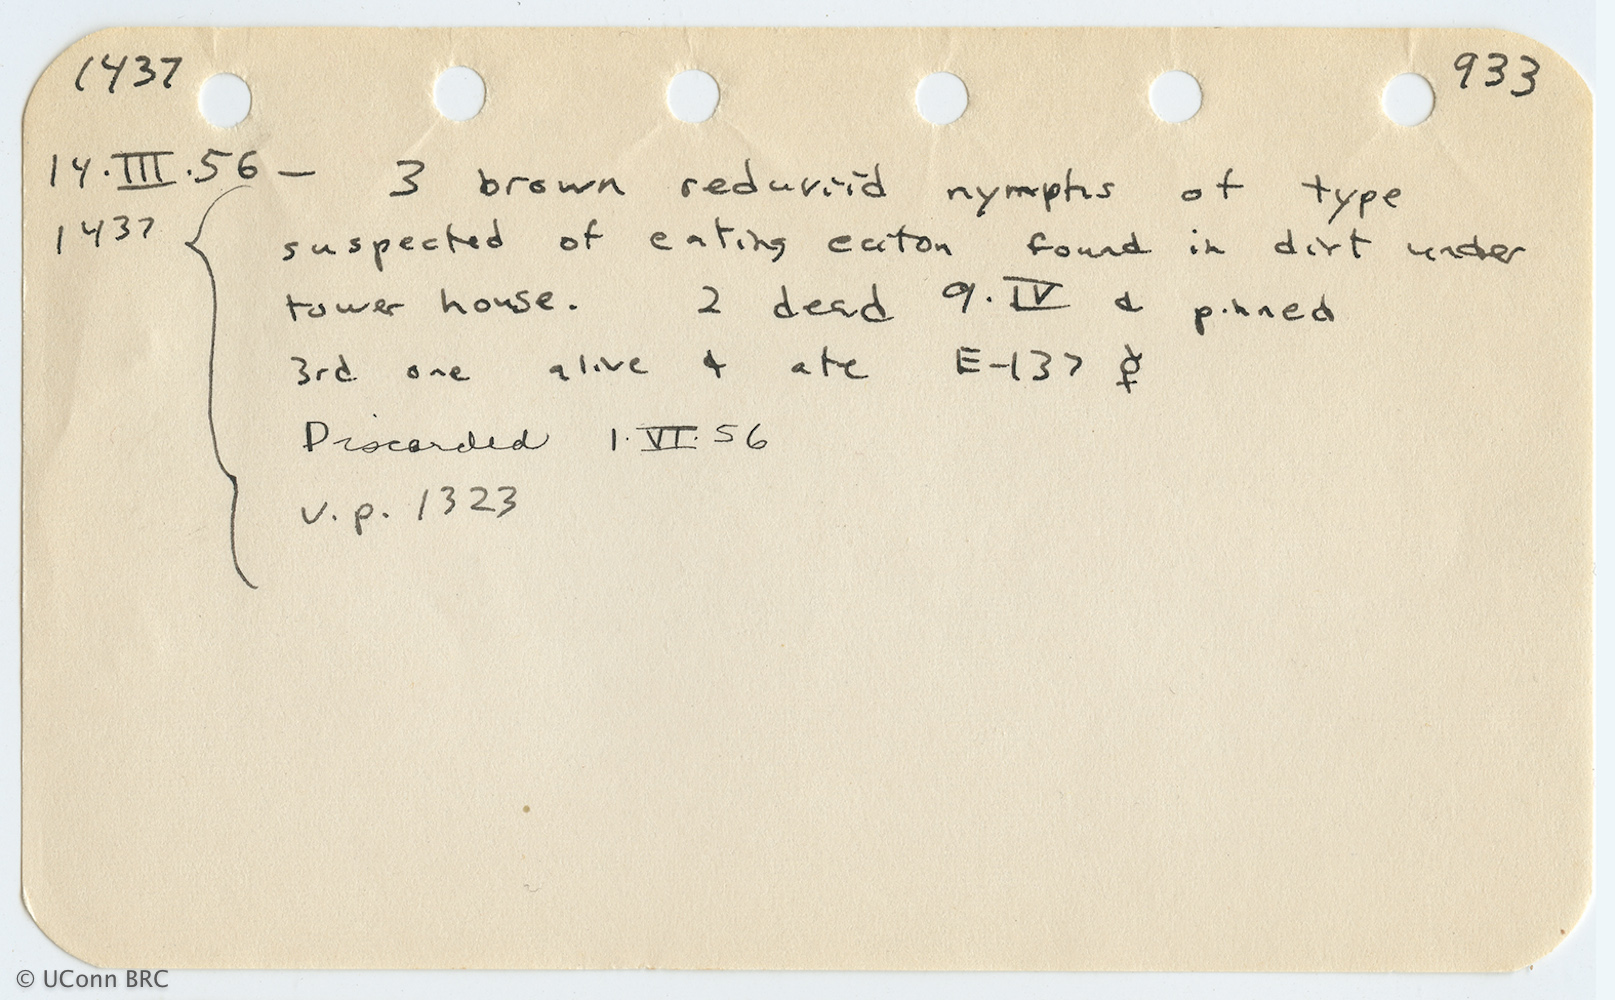 1437 933
14.III.56 — 3 brown reduviid nymphs of type
1437 suspected of eating eciton found in dirt under
tower house. 2 dead 9.IV & pinned
3rd one alive & ate E-137 ☿
Discarded 1.VI.56
v.p. 1323
© UConn BRC